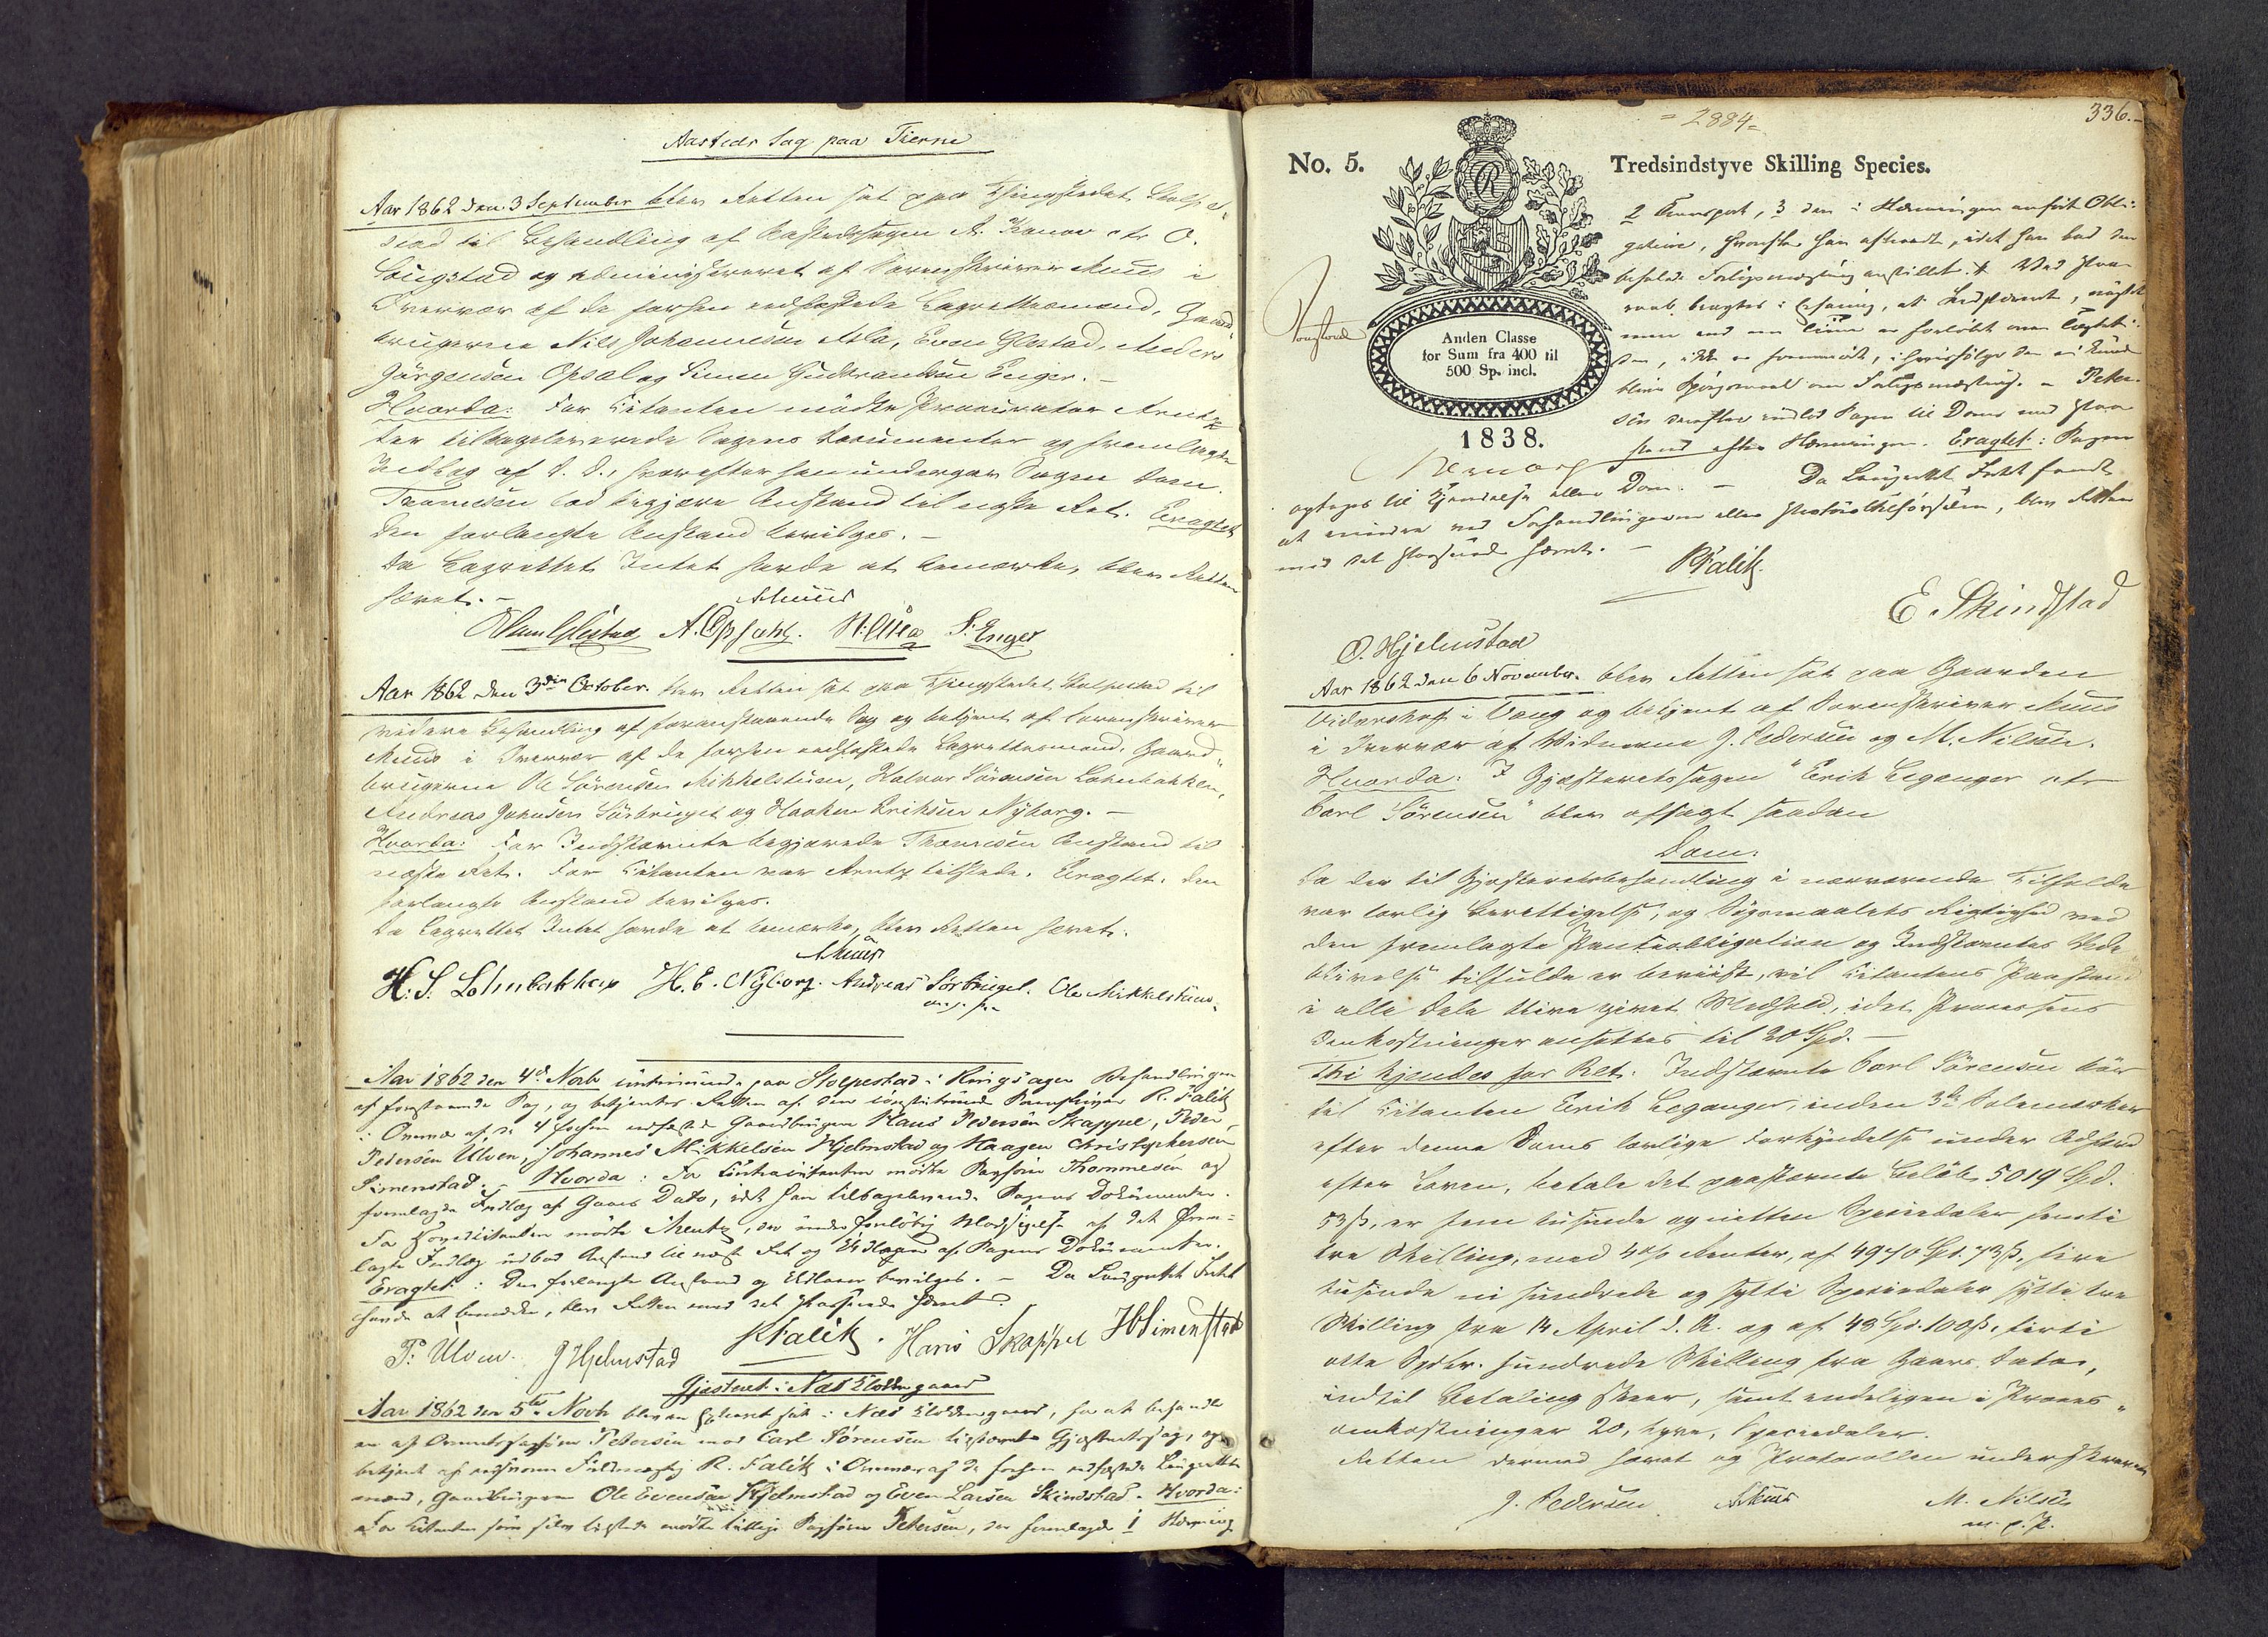 Aasteds Sag paa Tierne
Aar 1862 den 3 September blev Retten sat paa Thingstedet Stolpe-
stad til Behandling af Aastedssagen A. Konow ctr O.
Lougstad og administreret af Sorenskriver Muus i
Overvær af de forhen eedfæstede Laugrettesmænd, Gaard-
brugerne Nils Johannesen Alla, Even Glestad, Anders
Jørgensen Opsal og Simen Gudbrandsen Enger. –
Hvorda: For Citanten mødte Procurator Arentz
der tilbageleverede Sagens Documenter og fremlagde
Indlæg af D. D., hvorefter han undergav Sagen Dom.
Thomesen lod begjære Anstand til næste Ret. Eragtet
Den forlangte Anstand bevilges. –
Da Laugrettet Intet havde at bemærke, blev Retten
hævet. –
Muus
Glestad A. Opsahl. N. Alla S. Enger
Aar 1862 den 3die October. blev Retten sat paa Thingstedet Stolpestad til
videre Behandling af foranstaaende Sag og betjent af Sorenskriver
Muus i Overvær af de forhen eedfæstede Laugrettesmænd, Gaard-
brugerne Ole Sørensen Mikkelstuen, Halvor Sørensen Lohnbakken,
Andreas Johnsen Sørbruget og Haaken Eriksen Nyborg. –
Hvorda: For Indstævnte begjærede Thomesen Anstand til
næste Ret. For Citanten var Arentz tilstede. Eragtet. Den
forlangte Anstand bevilges.
Da Laugrettet Intet havde at bemærke, blev Retten hævet.
Muus
H. S. Lohnbakken H. E. Nyborg. Andreas Sørbruget. Ole Mikkelstuen.
m. p. P.
Aar 1862 den 4d Novb paa Stolpestad i Ringsager Behandlingen
af foranstaaende Sag, og betjentes Retten af den constituerede Sorenskriver R. Falck
i Overvær af de 4 forhen eedfæstede Gaardbrugere Hans Pedersen Skappel, Peder
Pedersen Ulven, Johannes Mikkelsen Hjelmstad og Haagen Christophersen
Simenstad. – Hvorda: For Contracitanten mødte Sagfører Thommesen og
fremlagde Indlæg af Gaars Dato, idet han tilbageleverede Sagens Dokumenter.
For Hovedcitanten mødte Arentz, der under foreløbig Modsigelse af det frem-
lagte Indlæg udbad Anstand til næste Ret og Udlaan af Sagens Dokumenter.
Eragtet: Den forlangte Anstand og Udlaan bevilges. – Da Laugrettet Intet
havde at bemærke, blev Retten med det Passerede hævet.
P. Ulven. J Hjelmstad RFalck. Hans Skappel H Simenstad
Gjesteret i Næs Klokkergaard
Aar 1862 den 5te Novb blev en Gjesteret sat i Næs Klokkergaard, for at behandle
en af Overretssagfører Petersen mod Carl Sørensen tilstævnte Gjesteretssag, og
betjent af edsvoren Fuldmægtig R. Falck i Overvær af de forhen eedfæstede Laugrettes-
mænd, Gaardbrugerne Ole Evensen Hjelmstad og Even Larsen Skindstad. Hvorda:
For Citanten som selv tilstede mødte tillige Sagfører Petersen, der fremlagde 1 Stævning
336.
= 2884 =
No. 5.
Tredsindstyve Skilling Species.
R
Anden Classe
for Sum fra 400 til
500 Sp. incl.
1838.
2 Transport, 3 den i Stævningen anførte Obli-
gation, hvorefter han , idet han bad den
befalede Forligsmægling anstillet. Ved Paa-
raab bragtes i Erfaring, at Indstævnte,
men end en Time er forløbet over Tægtet-
den, ikke er fremmødt, i hvis Følge der ei kunde
blive Spørgsmaal om Forligsmægling. – Peter-
sen derefter indlod Sagen til Doms med Paa-
stand efter Stævningen. Eragtet: Sagen
optages til Kjendelse eller Dom. – Da Laugrettet Intet fandt
at erindre ved Forhandlingerne eller Protokoltilførselen, blev Retten
med det Passerede hævet. –
RFalck
E. Skindstad
O. Hjelmstad
Aar 1862 den 6 November. blev Retten sat paa Gaarden
Vidershof i Vang og betjent af Sorenskriver Muus
i Overvær af Vidnerne J. Pedersen og M. Nilsen.
Hvorda: I Gjæsteretssagen "Erik Leganger ctr
Carl Sørensen" blev afsagt saadan
Dom:
Da der til Gjæsteretsbehandling i nærværende Tilfælde
var lovlig Berettigelse, og Søgsmaalets Rigtighed ved
den fremlagte Panteobligation og Indstævntes Ude-
blivelse tilfulde er beviist, vil Citantens Paastand
i alle Dele blive givet Medhold, idet Processens
Omkostninger ansættes til 20 Spd. –
Thi kjendes for Ret: Indstævnte Carl Sørensen bør
til Citanten Erik Leganger, inden 3de Solemærker
efter denne Doms lovlige Forkyndelse under Adfærd
efter Loven, betale det paastævnte Beløb 5019 Spd.
53 ß, er fem tusinde og nitten Speciedaler femti
tre Skilling, med 4 o/o Renter, af 4970 Spd. 73 ß. fire
tusinde ni hundrede og sytti Speciedaler sytti tre
Skilling fra 14 April d. A. og af 48 Spd. 100 ß. firti
otte Spdlr. hundrede Skilling fra Gaars Dato,
indtil Betaling skeer, samt endeligen i Proces-
omkostninger 20, tyve, Speciedaler.
Retten dermed hævet og Protocollen underskreven
J. Pedersen Muus M. Nilsen
m. p. P.